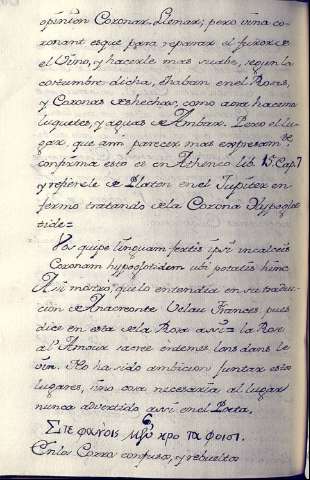 opinion Coronar. Llenar; pero vina co-
ronant es que para reparar el furor de
el Vino, y hacerle mas suabe, segun la
costumbre dicha, echaban en el Rosas,
y Coronas deshechas, como aora hacemos
luquetes, y aguas de Ambar. Pero el lu-
gar, que à mi parecer mas expresam.te
confirma esto es en Atheneo lib. 15. Cap. 7
y refierele de Platon en el Jupiter en-
fermo tratando de la Corona Hypoglot
tide=
Vos quipe linguam fertis ipsi in calceis
Coronam hypoglotidem ubi potatis hunc
Assi mostrò, que lo entendia en su traduc-
cion de Anacreonte Velau Frances, pues
dice en esta de la Rosa assi= la Rose
a l'Amour sacrée
dans le
vin. No ha sido ambicion juntar estos
lugares, sino cosa necesaria al lugar
nunca advertido assi en el Poeta.
Στεφανοις
προ
En los Corro confuso, y rebuelto